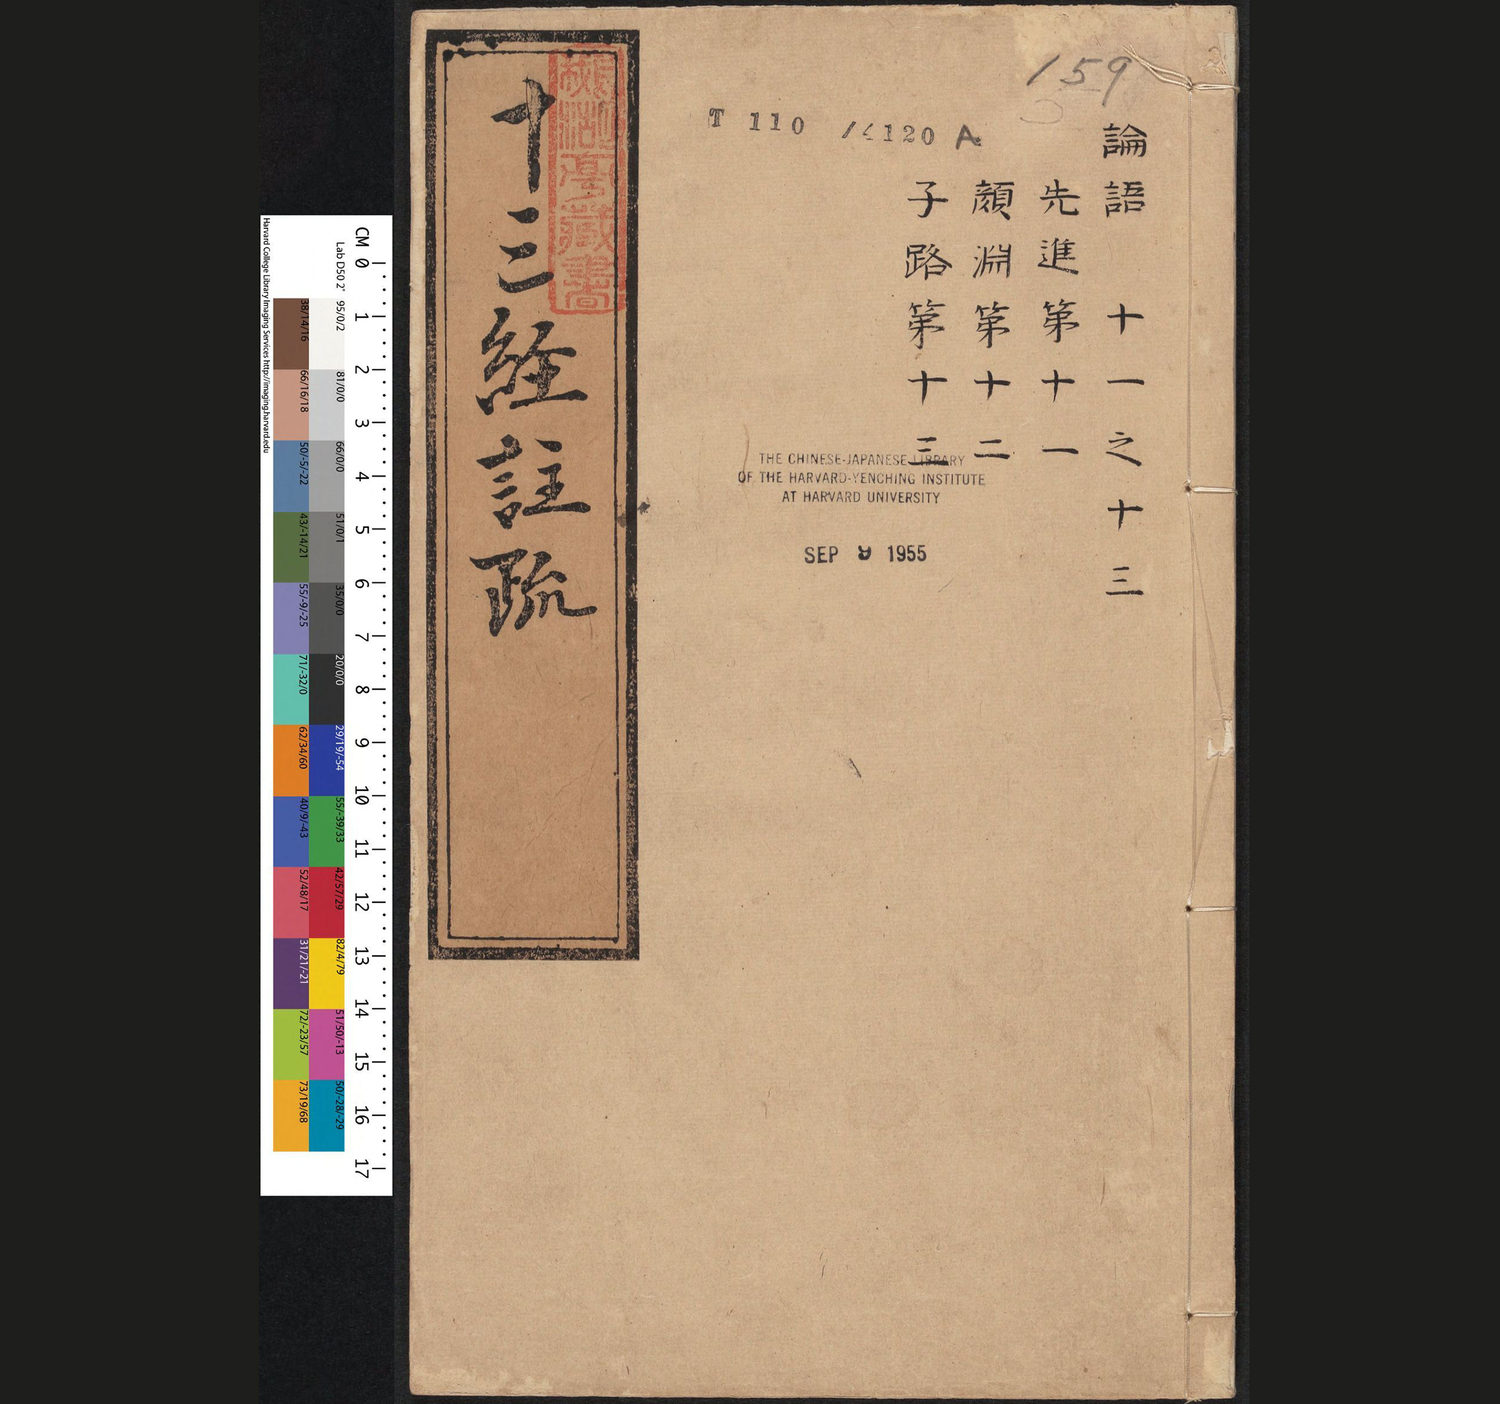 論語 十一之十三
先進第十一
顏淵第十二
子路第十三
159
T 110 /4120 A
THE CHINESE-JAPANESE LIBRARY
OF THE HARVARD-YENCHING INSTITUTE
AT HARVARD UNIVERSITY
SEP 9 1955
十三経註疏
亭藏書
CM 0 1 2 3 4 5 6 7 8 9 10 11 12 13 14 15 16 17
Lab D50 2°
95/0/2
81/0/0
66/0/0
51/0/1
35/0/0
20/0/0
29/19/-54
55/-39/33
42/57/29
82/4/79
51/50/-13
50/-28/-29
38/14/16
66/16/18
50/-5/-22
43/-14/21
55/-9/-25
71/-32/0
62/34/60
40/9/-43
52/48/17
31/21/-21
72/-23/57
73/19/68
Harvard College Library Imaging Services http://imaging.harvard.edu